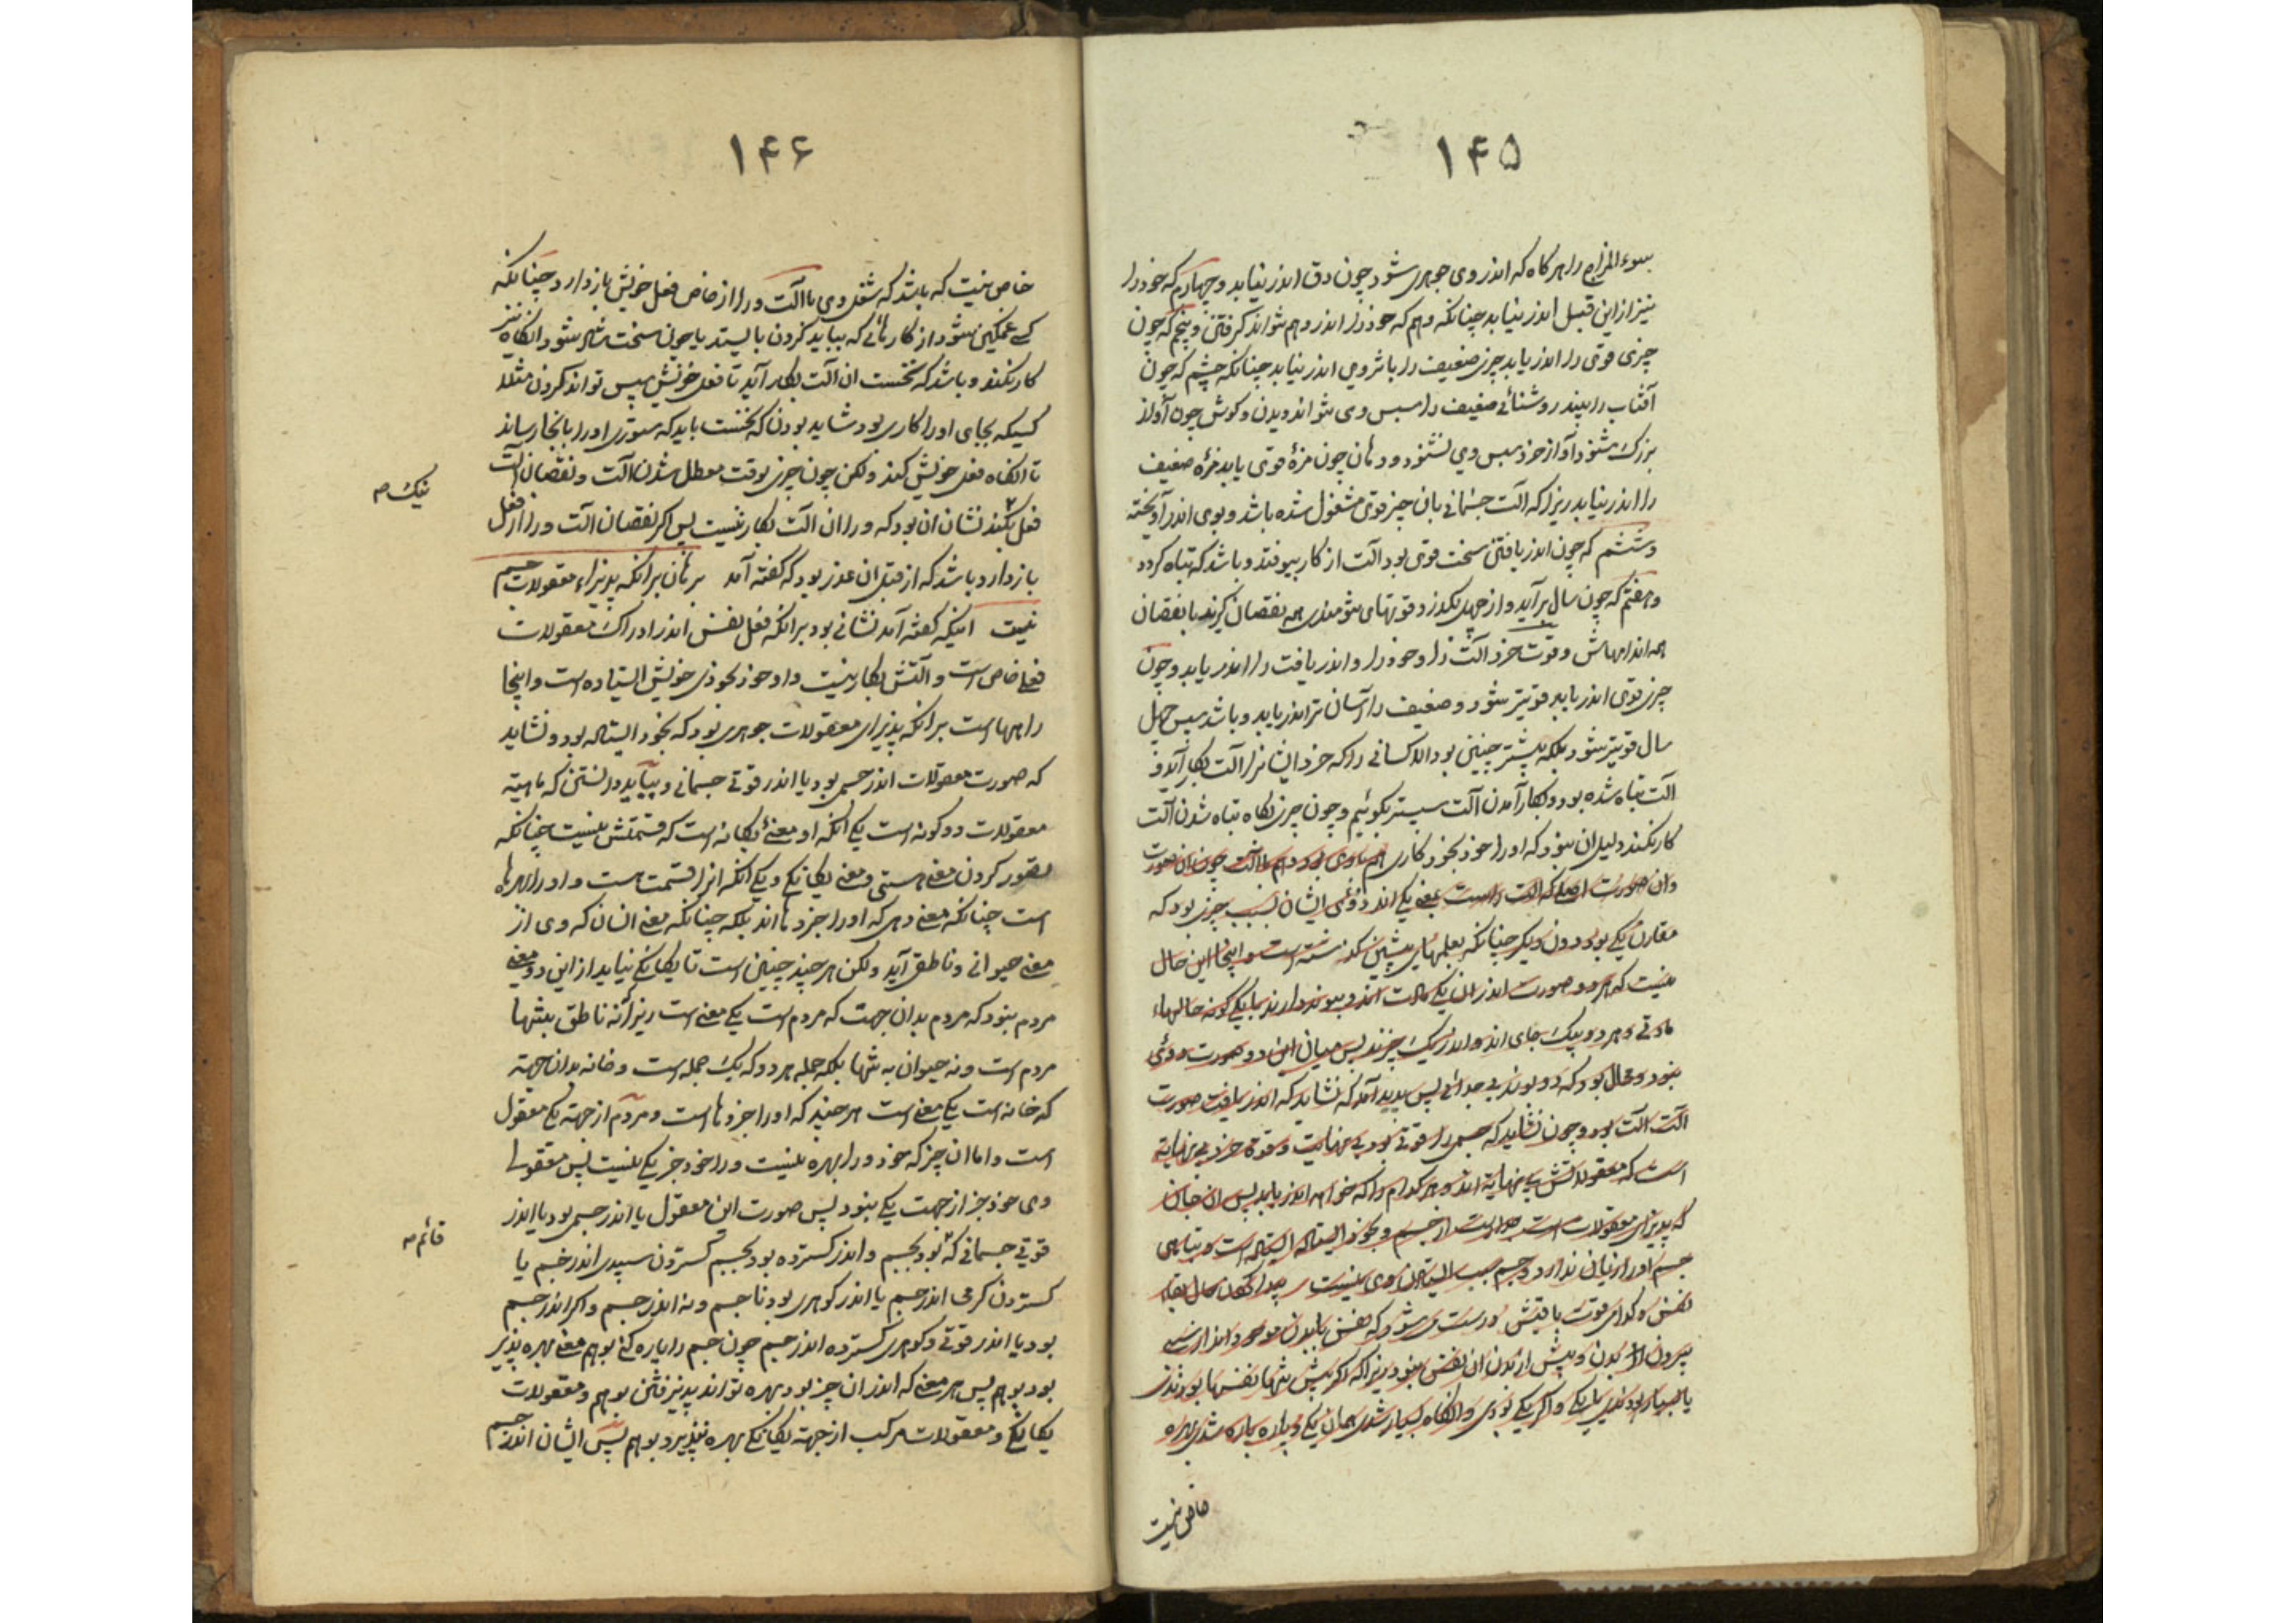 ۱۴۵
سوء المزاج را هرگاه که اندر وی جوهری شود چون دق اندر نیابد و چهارم که خود را
نیز از این قبل اندر نیابد چنانکه وهم که خود را اندر وهم نتواند گرفتن و پنجم که چون
چیزی قوی را اندر یابد چیز ضعیف را باثر وی اندر نیابد چنانکه چشم که چون
آفتاب را بیند روشنائی ضعیف را سپس وی نتواند دیدن و گوش چون آواز
بزرگ شنود آواز خرد سپس وی نشنود و دهان چون مزهٔ قوی یابد مزهٔ ضعیف
را اندر نیابد زیرا که الت جسمانی بان چیز قوی مشغول شده باشد و بوی اندر آویخته
و ششم که چون اندر یافتنی سخت قوی بود الت از کار بیوفتد و باشد که تباه گردد
و هفتم که چون سال برآید و از چهل بگذرد قوتهای تنومندی همه نقصان گیرند با نقصان
همه اندامهاش و قوت خرد الت را و خود را و اندر یافت را اندر یابد و چون
چیزی قوی اندر یابد قویتر شود و ضعیف را آسان تر اندر یابد و باشد سپس چهل
سال قویتر شود بلکه بیشتر چنین بود الا کسانی را که خرد ایشانرا الت بکار آید و
الت تباه شده بود و بکار آمدن الت سپستر بگوئیم و چون چیزی بگاه تباه شدن الت
کار نکند دلیل ان نبود که اورا خود بخود کاری هم باوی بود و هم با الت چون ان صورت
و ان صورت اصل که الت راست بمعنی یکی اند دوئی ایشان بسبب چیزی بود که
مقارن یکی بود دون دیگر چنانکه بعلمهای پیشین گذشته است و اینجا این حال
نیست که هر دو صورت اندران یک حالت اند و پیوند دارند با یکی گونه حالهاء
مادتی و هر دو بیک جای اند و اندر یک چیزند پس میان این دو صورت دوئی
نبود و محال بود که دو بوند بی جدائی پس پدید آمد که نشاید که اندر یافت صورت
الت الت بود و چون نشاید که جسم را قوتی بود بی نهایت و قوة خرد بی نهایة
است که معقولاتش بی نهایة اند و هر کدام را که خواهد اندر یابد پس ان جان
که پذیرای معقولات است جداست از جسم و بخود ایستاده است و تباهی
جسم اورا زیان ندارد و جسم سبب ایستادن وی نیست پیدا کردن حال بقاء
نفس و کدام قوت باقیش درست می شود که نفس با بدن موجود اند از سببی
بیرون از بدن و پیش از بدن ان نفس نبود زیرا که اگر پیش تنها نفسها بودندی
یا بسیار بودندی یا یکی و اگر یکی بودی وانگاه بسیار شدی همان یکی و پاره پاره شدی بهره
خاص نیست
۱۴۶
خاص نیست که باشد که شغل وی با الت ورا از خاص فعل خویش بازدارد چنانکه
کسی غمگین شود از کارهائی که بباید کردن بایستد یا چون سخت شاد شود انگاه نیز
کار نکند و باشد که نخست ان الت بکار آید تا فعل خویش سپس تواند کردن مثلا
کسیکه بجای اورا کاری بود شاید بودن که نخست باید که ستوری اورا بانجا رساند
تا انگاه فعل خویش کند ولکن چون چیزی بوقت معطل شدن الت و نقصان الت
فعل بکند نشان ان بود که ورا ان الت بکار نیست پس اگر نقصان الت ورا از فعل
نیک صح
بازدارد باشد که از قبل ان عذر بود که گفته آمد برهان برانکه پذیراء معقولات جسم
نیست اینکه گفته آمد نشانی بود برانکه فعل نفس اندر ادراک معقولات
فعلی خاص است و آلتش بکار نیست و او خود بخودی خویش ایستاده است و اینجا
راهها است برانکه پذیرای معقولات جوهری بود که بخود ایستاده بود و نشاید
که صورت معقولات اندر جسمی بود یا اندر قوتی جسمانی و بباید دانستن که ماهیة
معقولات دو گونه است یکی انکه او معنی یگانه است که قسمتش نیست چنانکه
تصور کردن معنی هستی و معنی یگانگی و یکی انکه انرا قسمت هست و او را بهرها
است چنانکه معنی دهی که اورا جزوها اند بلکه چنانکه معنی انسان که وی از
معنی حیوانی و ناطقی آید ولکن هرچند چنین است تا یگانگی نیابد از این دو معنی
مردم نبود که مردم بدان جهت که مردم است یکی معنی است زیرا نه ناطق بتنها
مردم است و نه حیوان به تنها بلکه جمله هر دو که یک جمله است و خانه بدان جهة
که خانه است یکی معنی است هرچند که اورا جزوها است و مردم از جهة یکی معقول
است و اما ان چیز که خود ورا بهره نیست ورا خود جز یکی نیست پس معقولی
وی خود جز از جهت یکی نبود پس صورت این معقول یا اندر جسمی بود یا اندر
قوتی جسمانی که بود بجسم و اندر گسترده بود بجسم گستردن سپیدی اندر جسم یا
قائم صح
گستردن گرمی اندر جسم یا اندر گوهری بود نا جسم و نه اندر جسم و اگر اندر جسم
بود یا اندر قوتی و گوهری گسترده اندر جسم چون جسم را پاره کنی بوهم معنی بهره پذیر
بود بوهم پس هر معنی که اندر ان چیز بود بهره تواند پذیرفتن بوهم و معقولات
یگانگی و معقولات مرکب از جهة یگانگی بهره نپذیرد بوهم پس ایشان اندر جسم